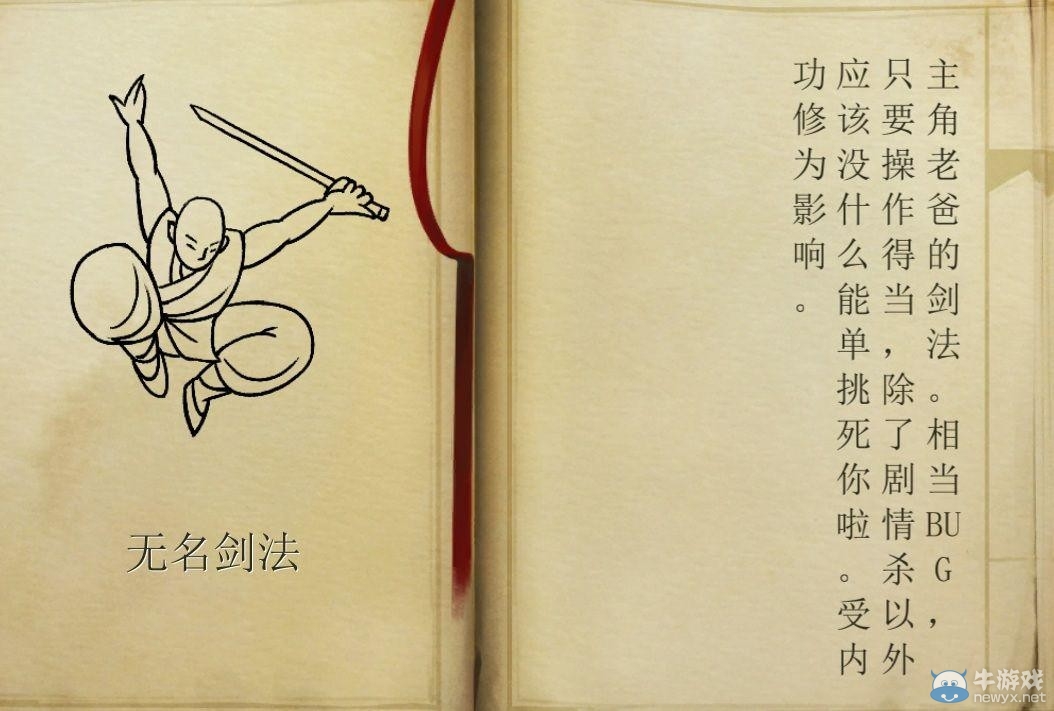 无名剑法
主角老爸的剑法。相当BU
G，
只要操作得当，除了剧情杀以外
应该没什么能单挑死你啦。受内
功修为影响。
牛游戏
newyx.net